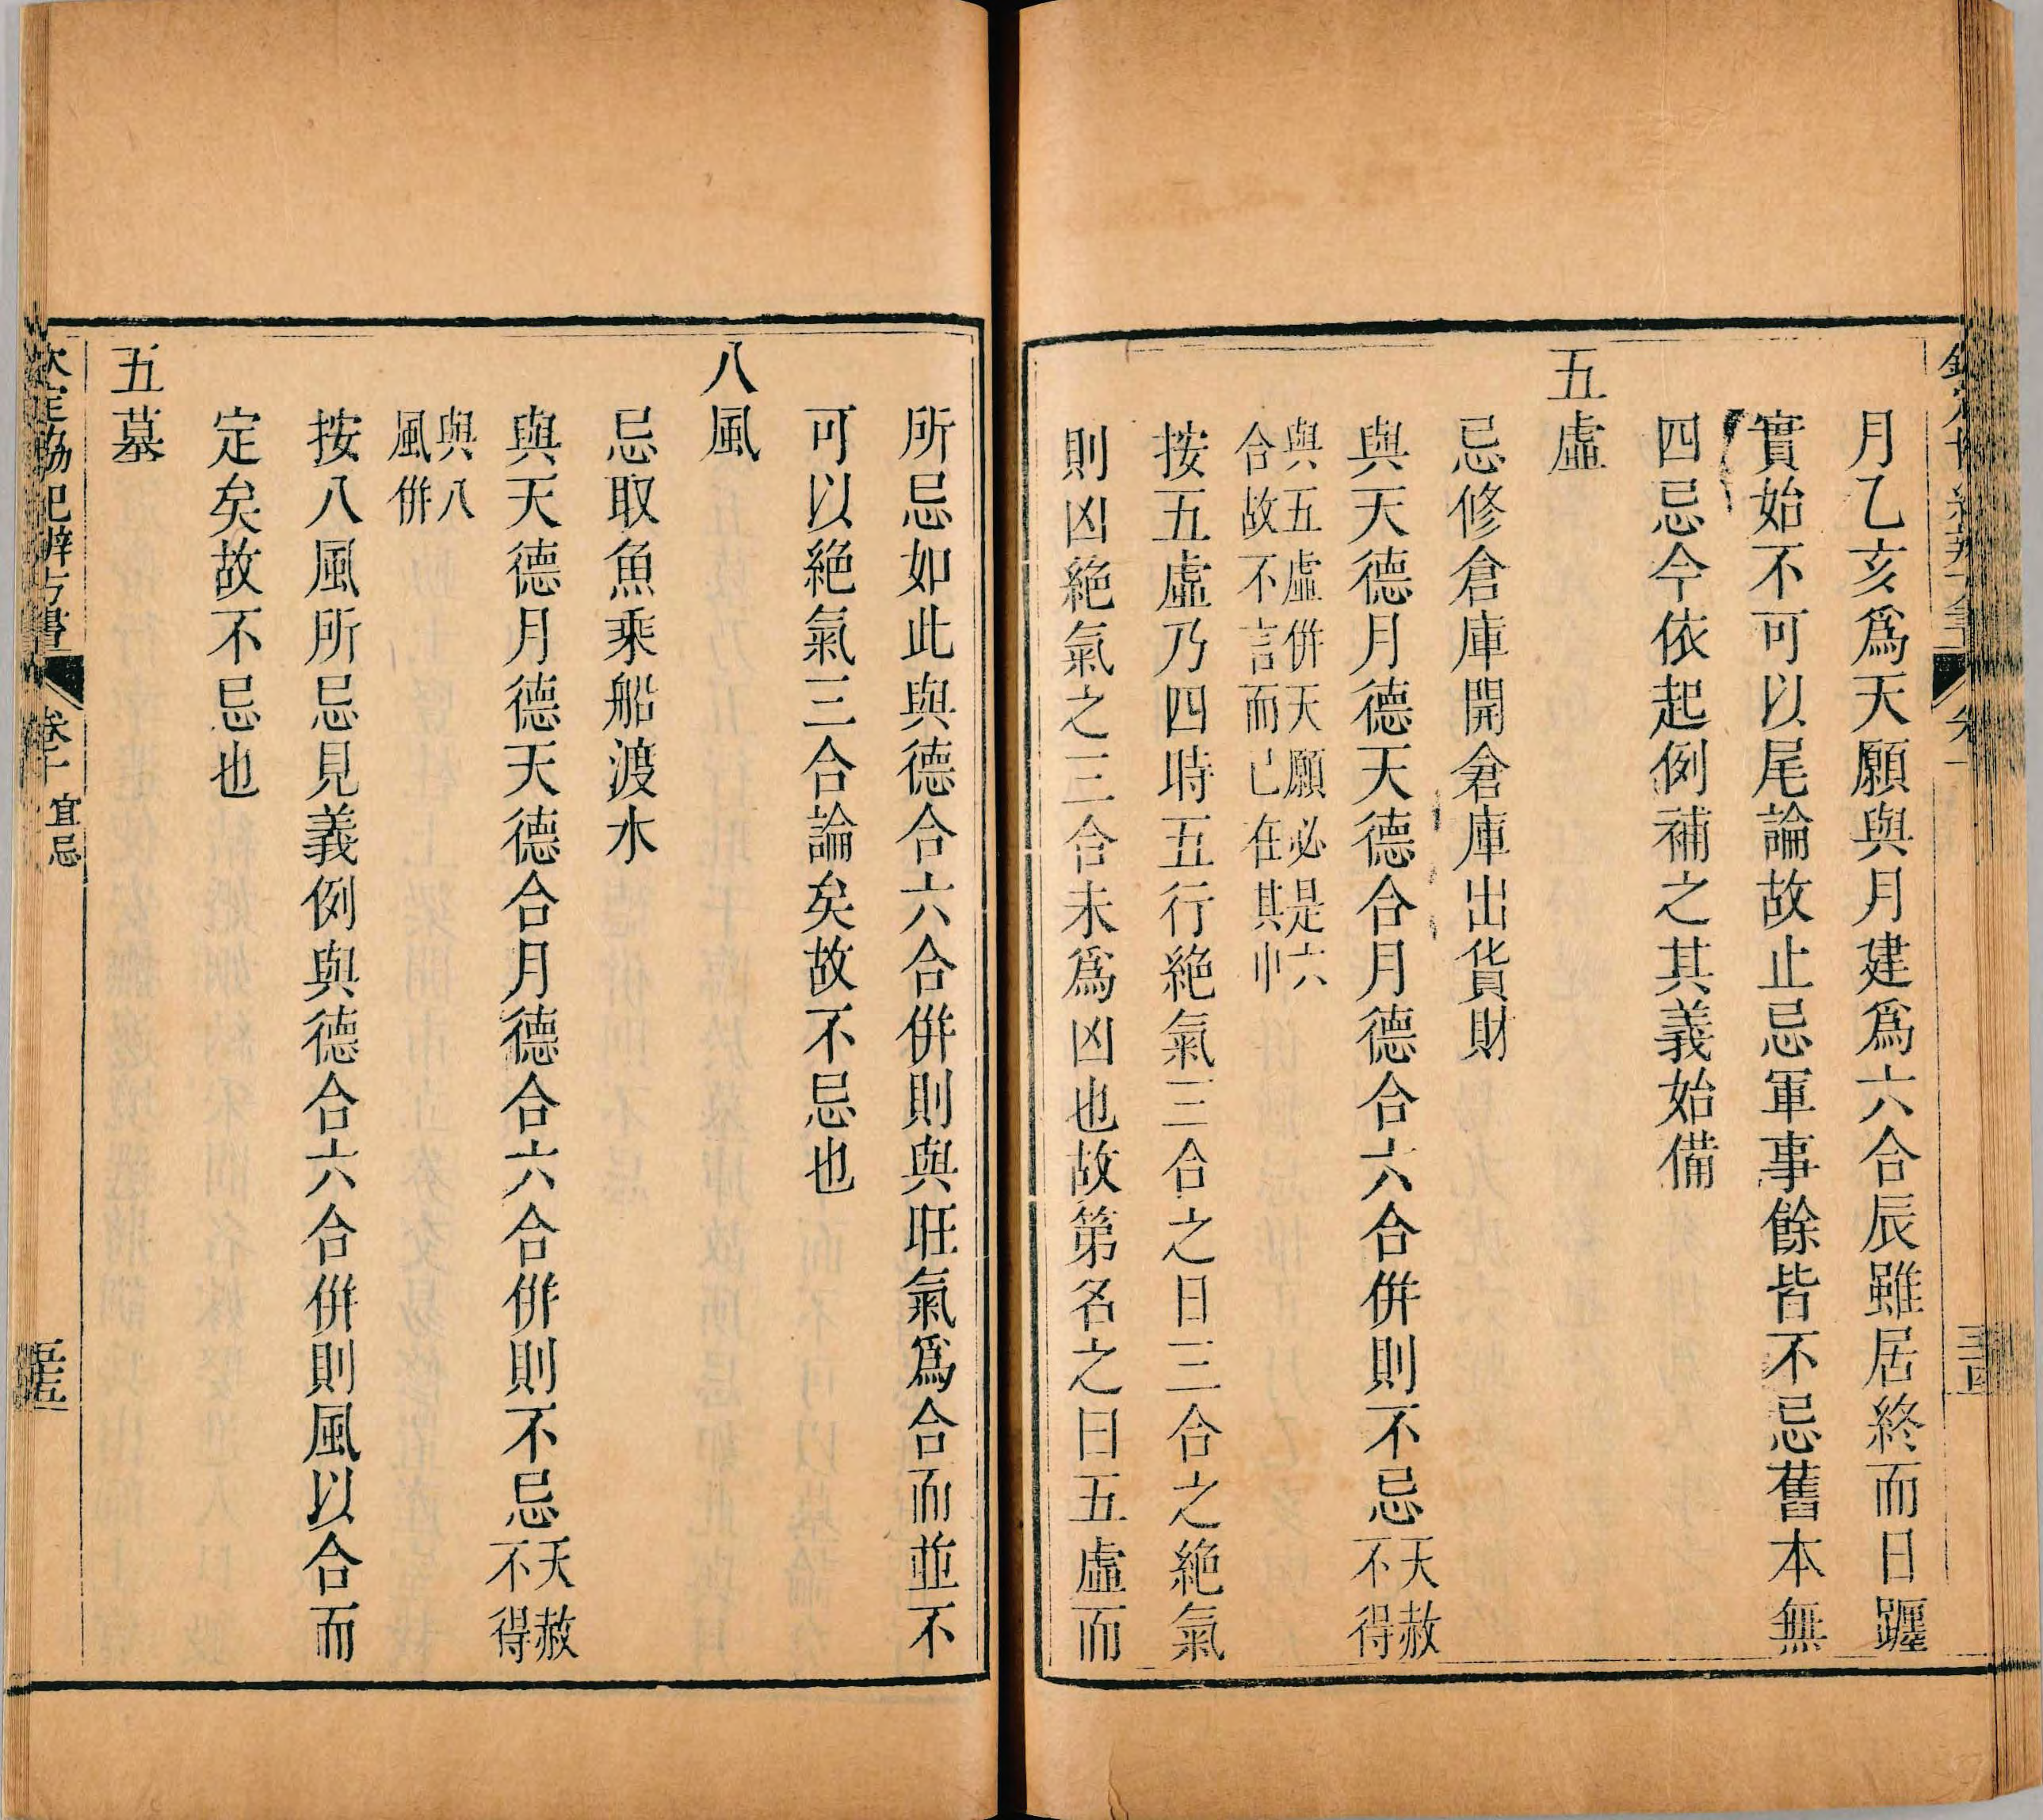 月乙亥爲天願與月建爲六合辰雖居終而日躔
實始不可以尾論故止忌軍事餘皆不忌舊本無
四忌今依起例補之其義始備
五虛
忌修倉庫開倉庫出貨財
與天德月德天德合月德合六合併則不忌天赦不得
與五虛併天願必是六
合故不言而已在其中
按五虛乃四時五行絶氣三合之日三合之絶氣
則凶絶氣之三合未爲凶也故第名之曰五虛而
所忌如此與德合六合併則與旺氣爲合而並不
可以絶氣三合論矣故不忌也
八風
忌取魚乘船渡水
與天德月德天德合月德合六合併則不忌天赦不得
與八
風併
按八風所忌見義例與德合六合併則風以合而
定矣故不忌也
五墓
欽定協紀辨方書 卷十 宜忌 五十五